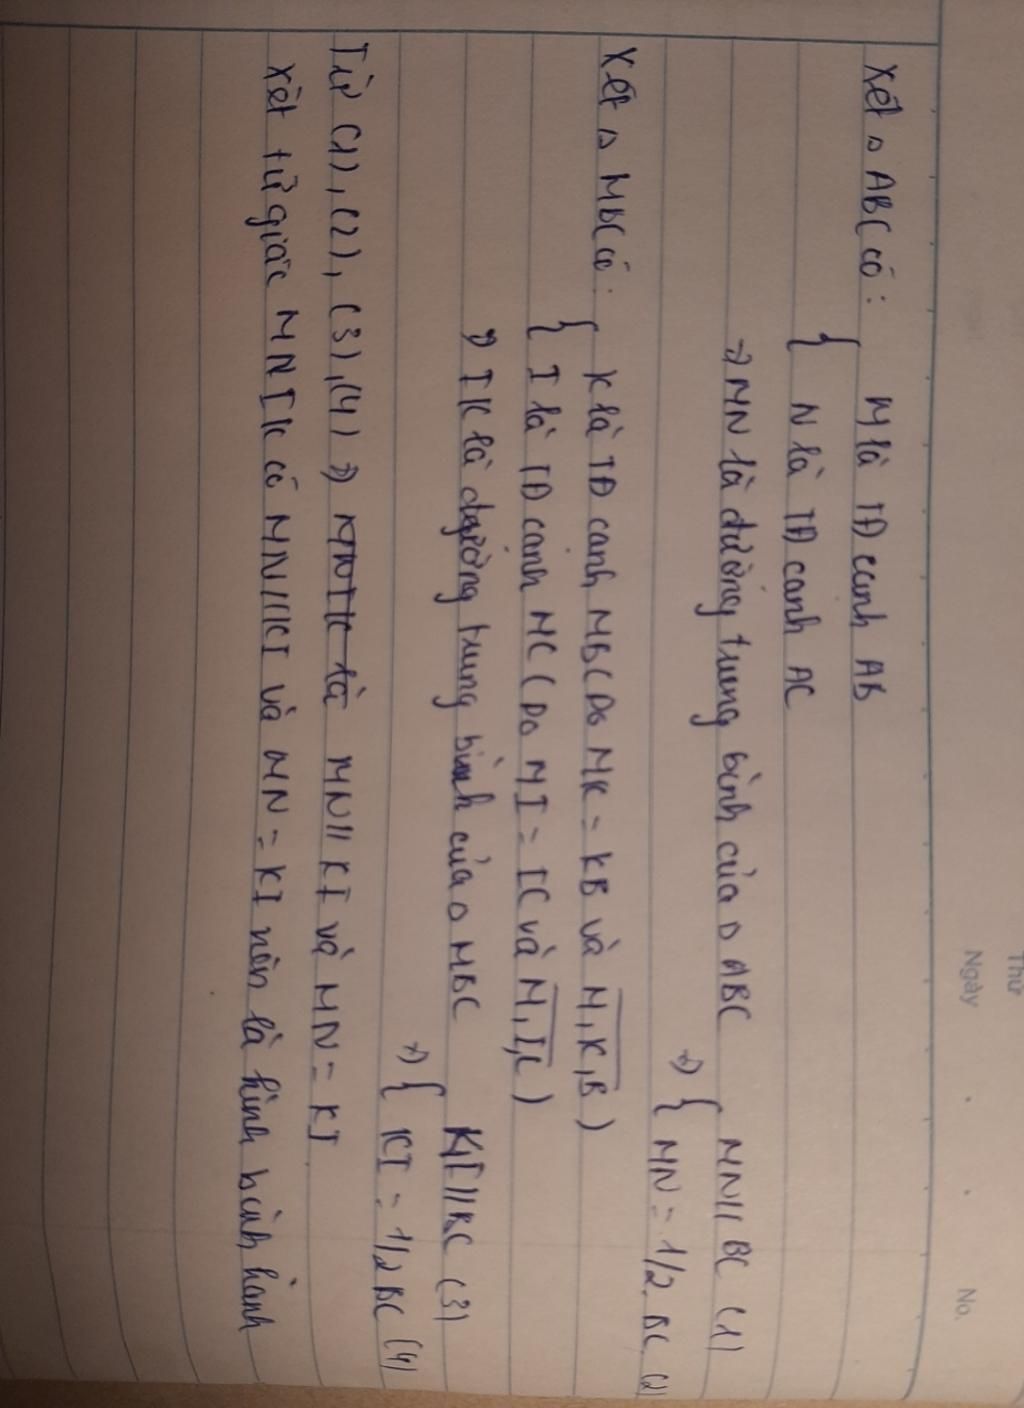 Thứ
Ngày . . No.
Xét △ ABC có : { M là TĐ cạnh AB
N là TĐ cạnh AC
=> MN là đường trung bình của △ ABC => { MN // BC (1)
MN = 1/2. BC (2)
Xét △ MBC có : { K là TĐ cạnh MB (Do MK = KB và M,K,B)
I là TĐ cạnh MC (Do MI = IC và M,I,C)
=> IK là đường trung bình của △ MBC => { KI // BC (3)
KI = 1/2 BC (4)
Từ (1), (2), (3), (4) => MNIK là MN // KI và MN = KI
Xét tứ giác MNIK có MN // KI và MN = KI nên là hình bình hành